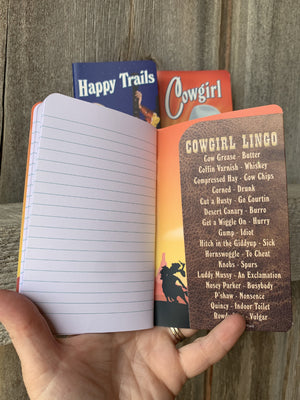 Happy Trails
Cowgirl
COWGIRL LINGO
Cow Grease - Butter
Coffin Varnish - Whiskey
Compressed Hay - Cow Chips
Corned - Drunk
Cut a Rusty - Go Courtin
Desert Canary - Burro
Get a Wiggle On - Hurry
Gump - Idiot
Hitch in the Giddyup - Sick
Hornswoggle - To Cheat
Knobs - Spurs
Luddy Mussy - An Exclamation
Nosey Parker - Busybody
P'shaw - Nonsence
Quincy - Indoor Toilet
Vulgar